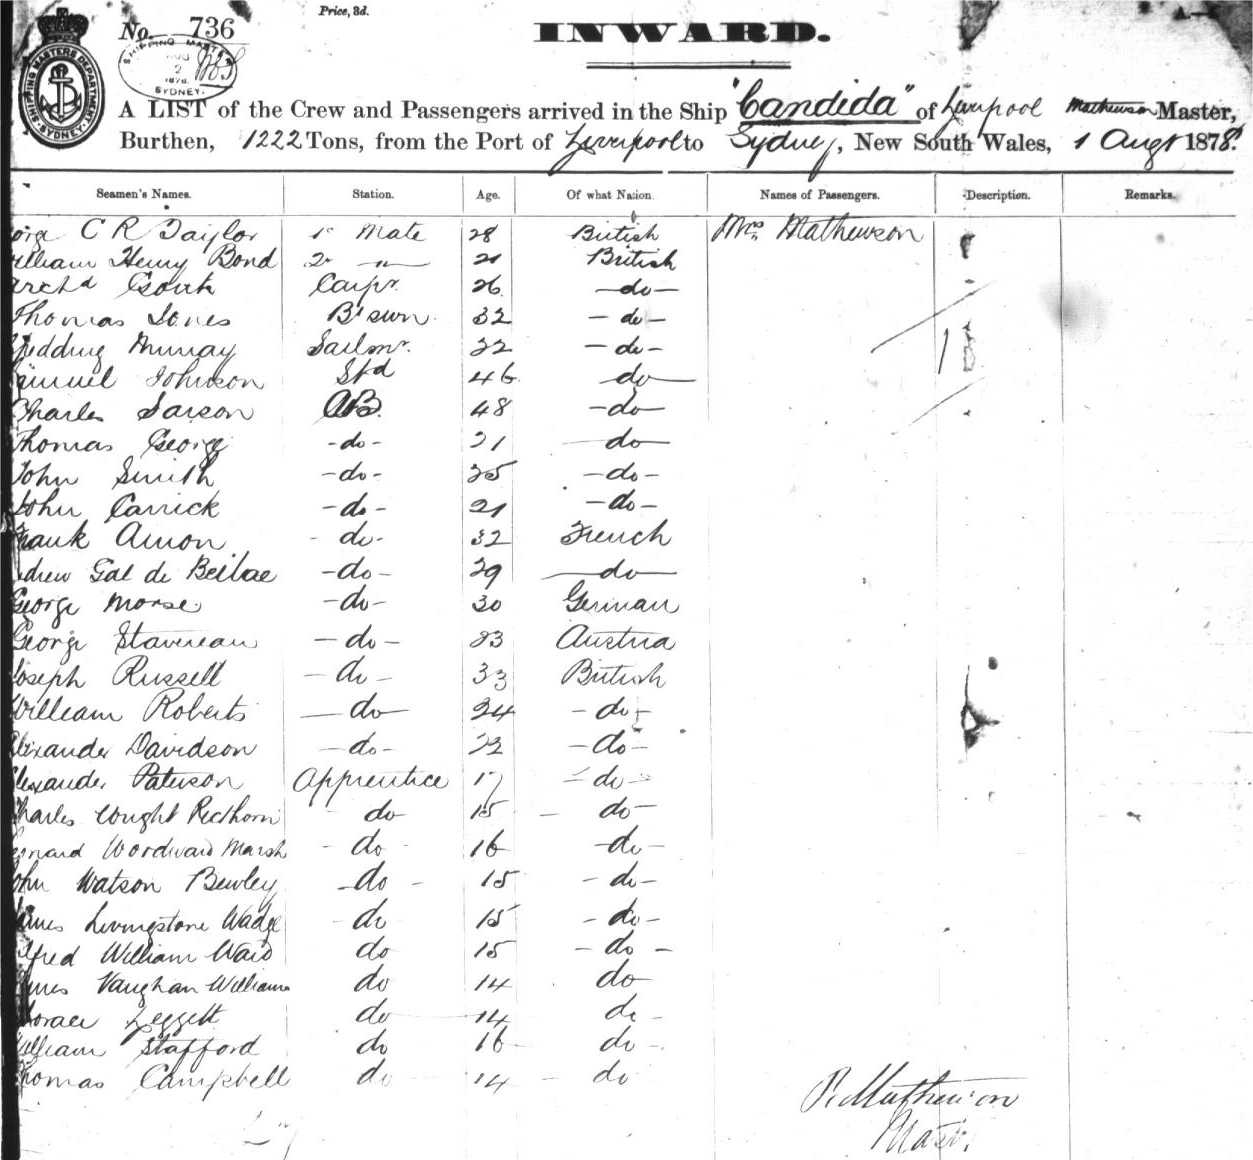 Price, 3d.
No. 736
INWARD.
SHIPPING MASTERS DEPARTMENT SYDNEY
SHIPPING MASTER
2
1878
SYDNEY
A LIST of the Crew and Passengers arrived in the Ship "Candida" of Liverpool Mathewson Master,
Burthen, 1222 Tons, from the Port of Liverpool to Sydney, New South Wales, 1 Augt 1878.
Seamen's Names. Station. Age. Of what Nation. Names of Passengers. Description. Remarks.
C R Taylor 1st Mate 28 British Mrs. Mathewson
illiam Henry Bond 2 — " — 21 British
arch'd Carp'r 26 — do —
Thomas Jones B'swn 32 — do —
Murray Sailmr. 22 — do —
amuel Johnson Std 46 do —
Charles Sarson AB. 48 — do —
Thomas George - do - 21 — do —
John Smith - do - 25 — do —
John Carrick - do - 21 — do —
Frank Amon - do - 32 French
drew Gal de - do - 29 — do —
George Morse - do - 30 German
George - do - 23 Austria
Joseph Russell - do - 33 British
William Roberts — do — 24 — do —
Alexander Davidson — do — 22 — do —
Alexander Paterson Apprentice 17 — do —
Charles do 15 — do —
eonard Woodward Marsh - do - 16 — do —
John Watson Bewley - do - 15 — do —
ames Livingstone Wadge - do 15 — do —
lfred William Ward do 15 — do —
ames Vaughan Williams do 14 do
Horace Leggett do 14 do -
William Stafford do 16 do -
homas Campbell do 14 — do
Mathewson
Mastr.